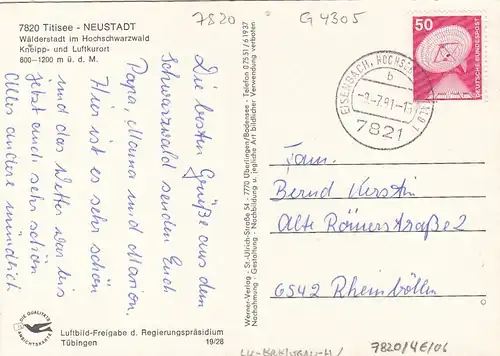 7820 Titisee - NEUSTADT
Wälderstadt im Hochschwarzwald
Kneipp- und Luftkurort
800-1200 m ü. d. M.
7820
G 4305
Die besten Grüße aus dem
Schwarzwald senden Euch
Papa, Mama und Marion.
Hier ist es sehr schön
und das Wetter war bis
jetzt auch sehr schön
Alles andere mündlich
DIE QUALITÄTS
ANSICHTSKARTE
Luftbild-Freigabe d. Regierungspräsidium
Tübingen 19/28
Werner-Verlag - St.-Ulrich-Straße 54 - 7770 Überlingen/Bodensee - Telefon 07551/61937
Nachahmung - Gestaltung - Nachbildung u. jegliche Art bildlicher Verwendung verboten
50
DEUTSCHE BUNDESPOST
EISENBACH, HOCHSCHWARZWALD 1
b
7821
Fam.
Bernd Kerstin
Alte Römerstraße 2
6542 Rheinböllen
7820/4E/06